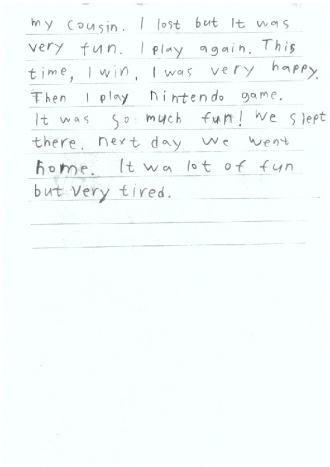 my cousin. I lost but It was
very fun. I play again. This
time, I win, I was very happy.
Then I play nintendo game.
It was so much fun! We slept
there. next day we went
home. It wa lot of fun
but very tired.